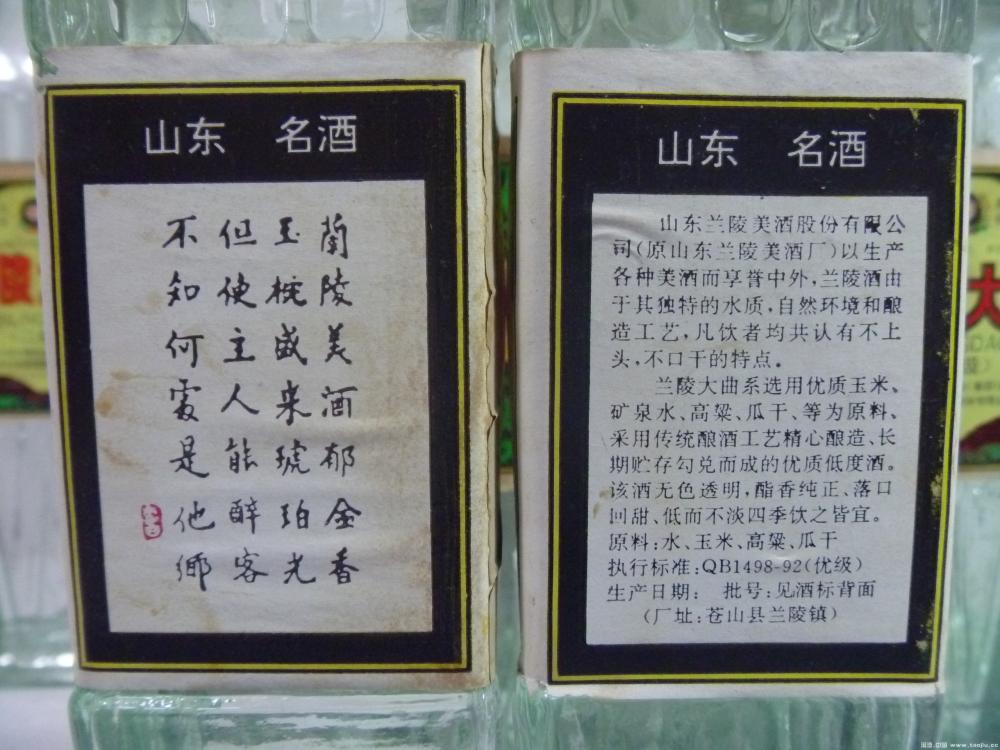 山东 名酒
蘭陵美酒郁金香
玉椀盛来琥珀光
但使主人能醉客
不知何處是他鄉
山东 名酒
山东兰陵美酒股份有限公
司(原山东兰陵美酒厂)以生产
各种美酒而享誉中外,兰陵酒由
于其独特的水质,自然环境和酿
造工艺,凡饮者均共认有不上
头,不口干的特点。
兰陵大曲系选用优质玉米、
矿泉水、高粱、瓜干、等为原料、
采用传统酿酒工艺精心酿造、长
期贮存勾兑而成的优质低度酒。
该酒无色透明,酯香纯正、落口
回甜、低而不淡四季饮之皆宜。
原料:水、玉米、高粱、瓜干
执行标准:QB1498-92(优级)
生产日期: 批号:见酒标背面
(厂址:苍山县兰陵镇)
陵
大